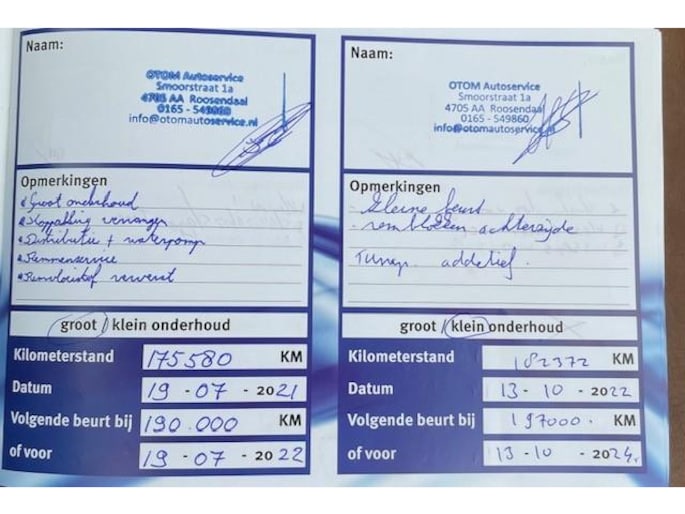 Naam:
OTOM Autoservice
Smoorstraat 1a
4705 AA Roosendaal
0165 - 549860
info@otomautoservice.nl
Opmerkingen
Groot onderhoud
vervangen
Distributie + waterpomp
Remmenservice
Remvloeistof ververst
groot / klein onderhoud
Kilometerstand 175580 KM
Datum 19 - 07 - 2021
Volgende beurt bij 190.000 KM
of voor 19 - 07 - 2022
Naam:
OTOM Autoservice
Smoorstraat 1a
4705 AA Roosendaal
0165 - 549860
info@otomautoservice.nl
Opmerkingen
Kleine beurt
- remblokken achterzijde
addetief.
groot / klein onderhoud
Kilometerstand 182372 KM
Datum 13 - 10 - 2022
Volgende beurt bij 197000. KM
of voor 13 - 10 - 2024.